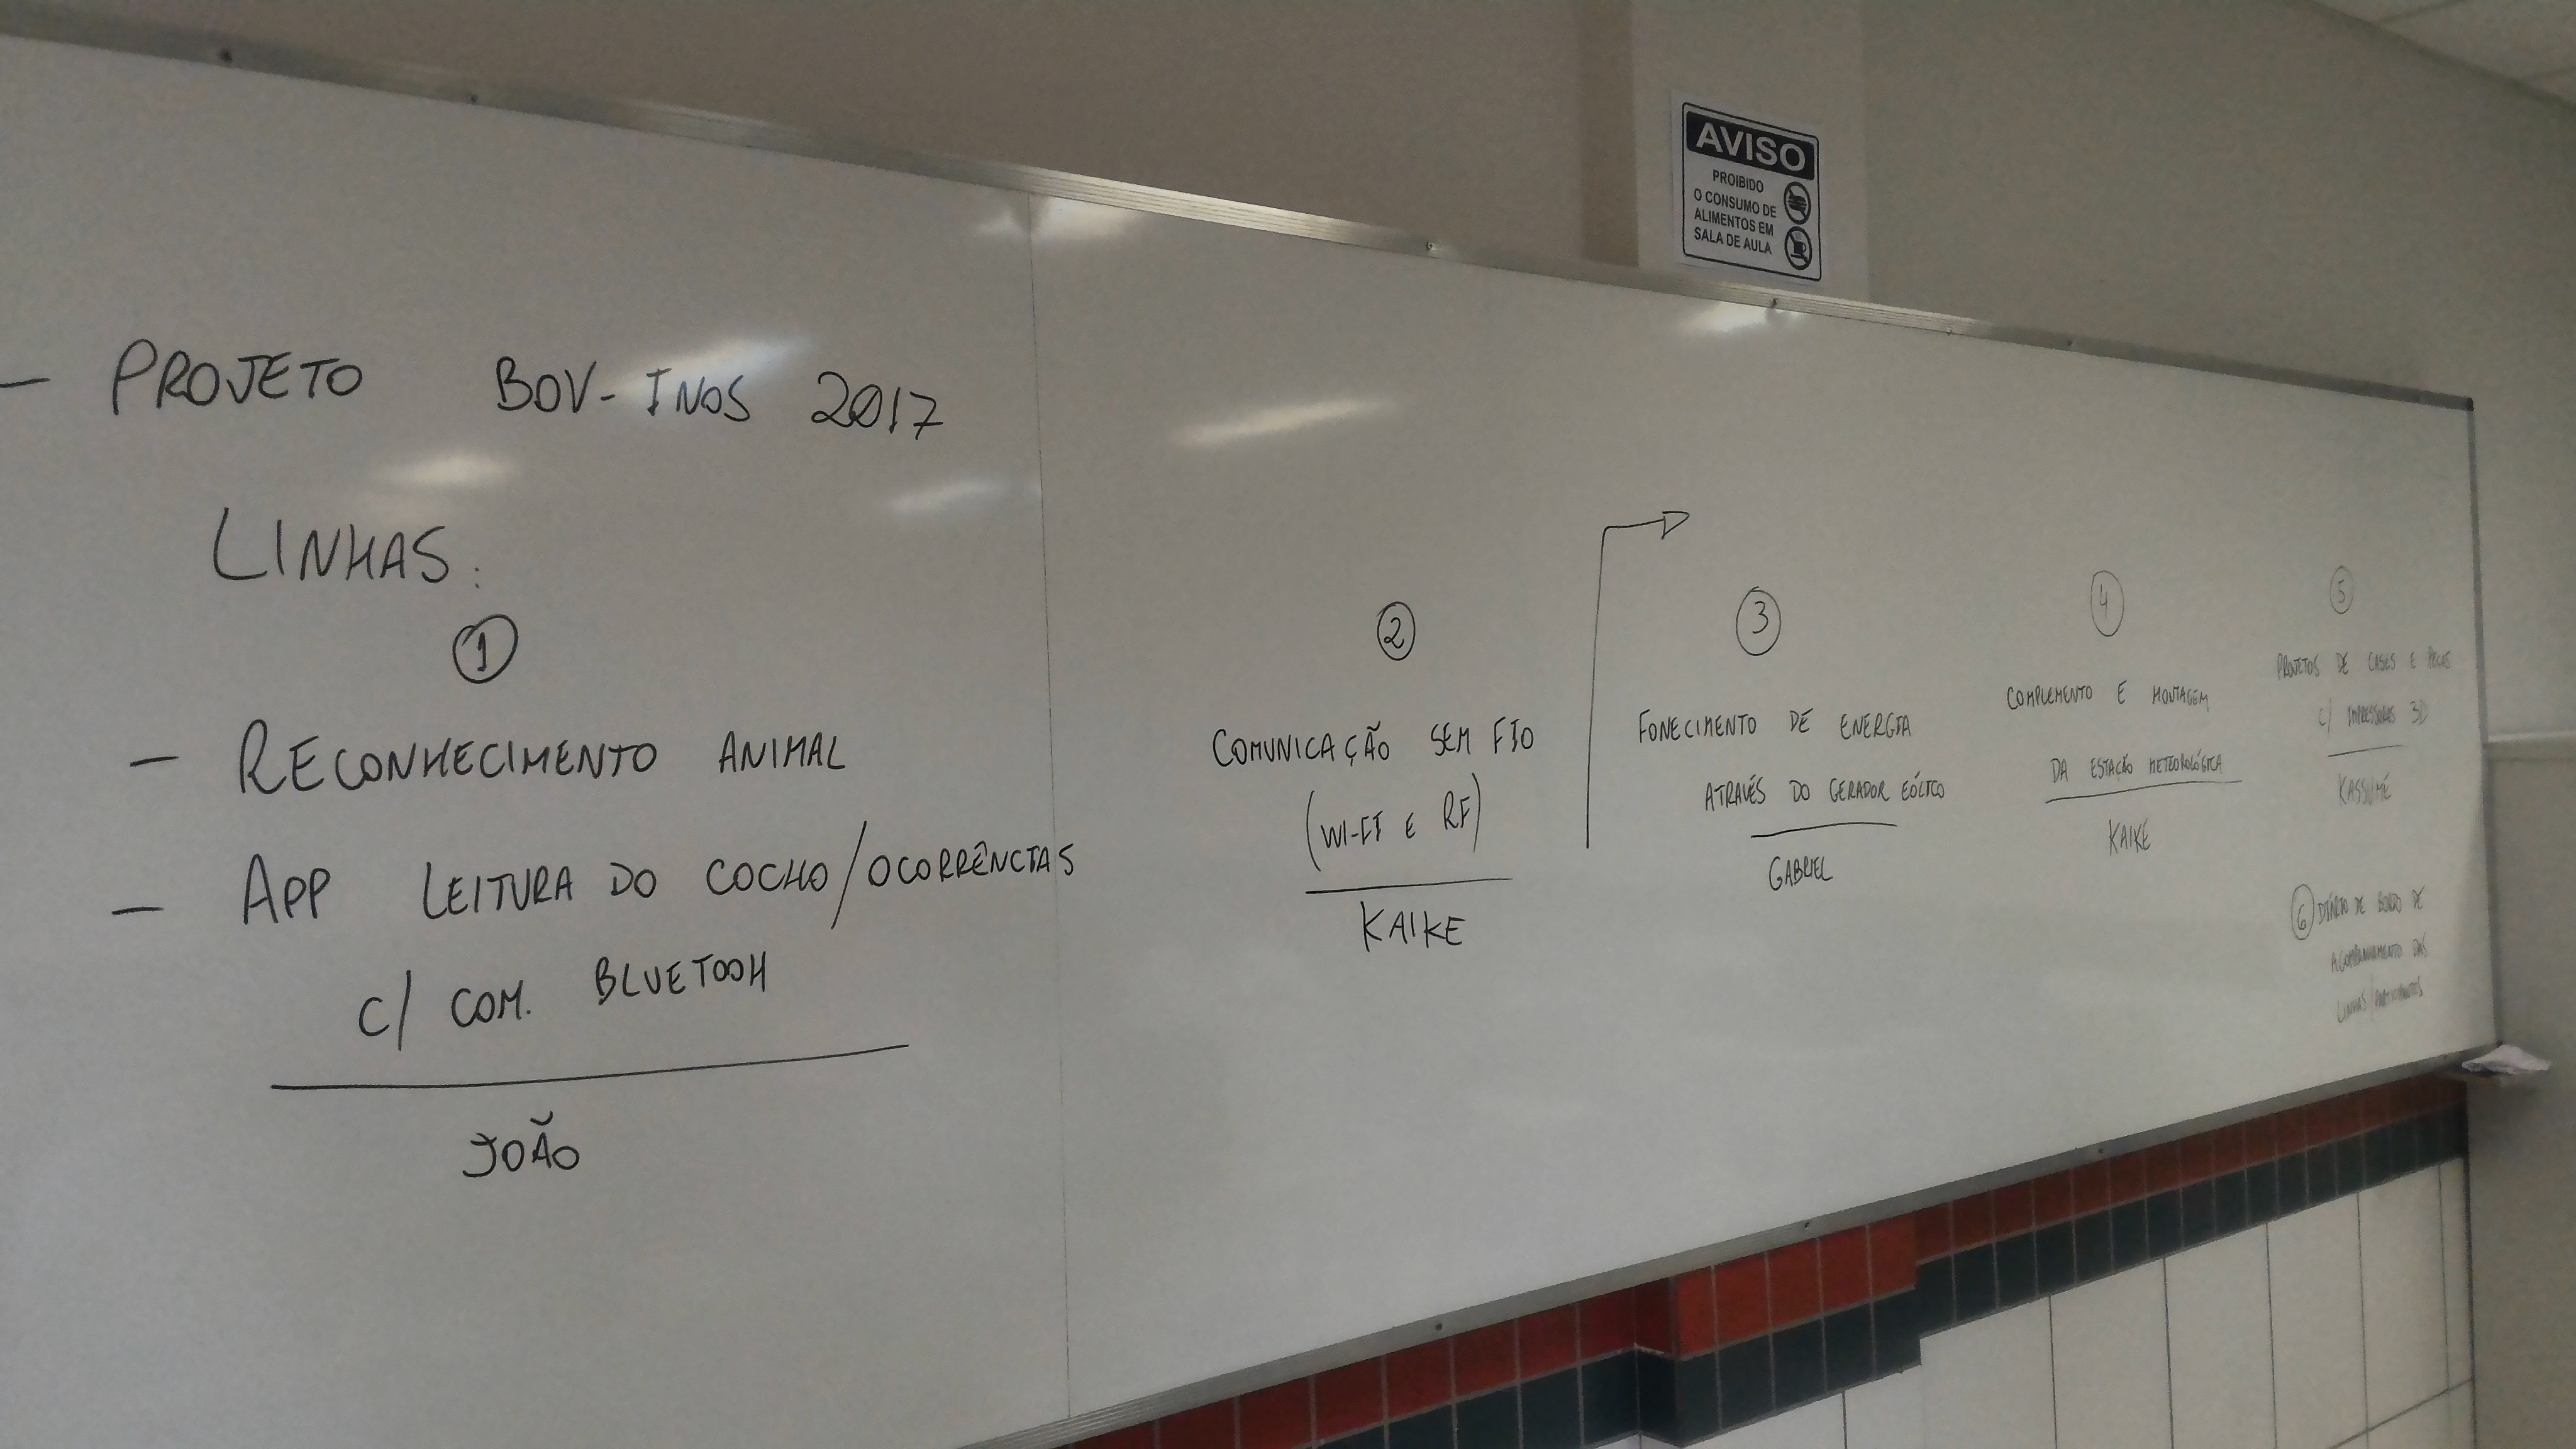 AVISO
PROIBIDO
O CONSUMO DE
ALIMENTOS EM
SALA DE AULA
- PROJETO BOV-INOS 2017
LINHAS:
1
- RECONHECIMENTO ANIMAL
- APP LEITURA DO COCHO/OCORRÊNCIAS
C/ COM. BLUETOOH
JOÃO
2
COMUNICAÇÃO SEM FIO
(WI-FI E RF)
KAIKE
3
FONECIMENTO DE ENERGIA
ATRAVÉS DO GERADOR EÓLICO
GABRIEL
4
COMPLEMENTO E MONTAGEM
DA ESTAÇÃO METEOROLÓGICA
KAIKE
5
PROJETOS DE CASES E PEÇAS
C/ IMPRESSORAS 3D
KASSUMÉ
6 DIÁRIO DE BORDO DE
ACOMPANHAMENTO DAS
LINHAS/PARTICIPANTES